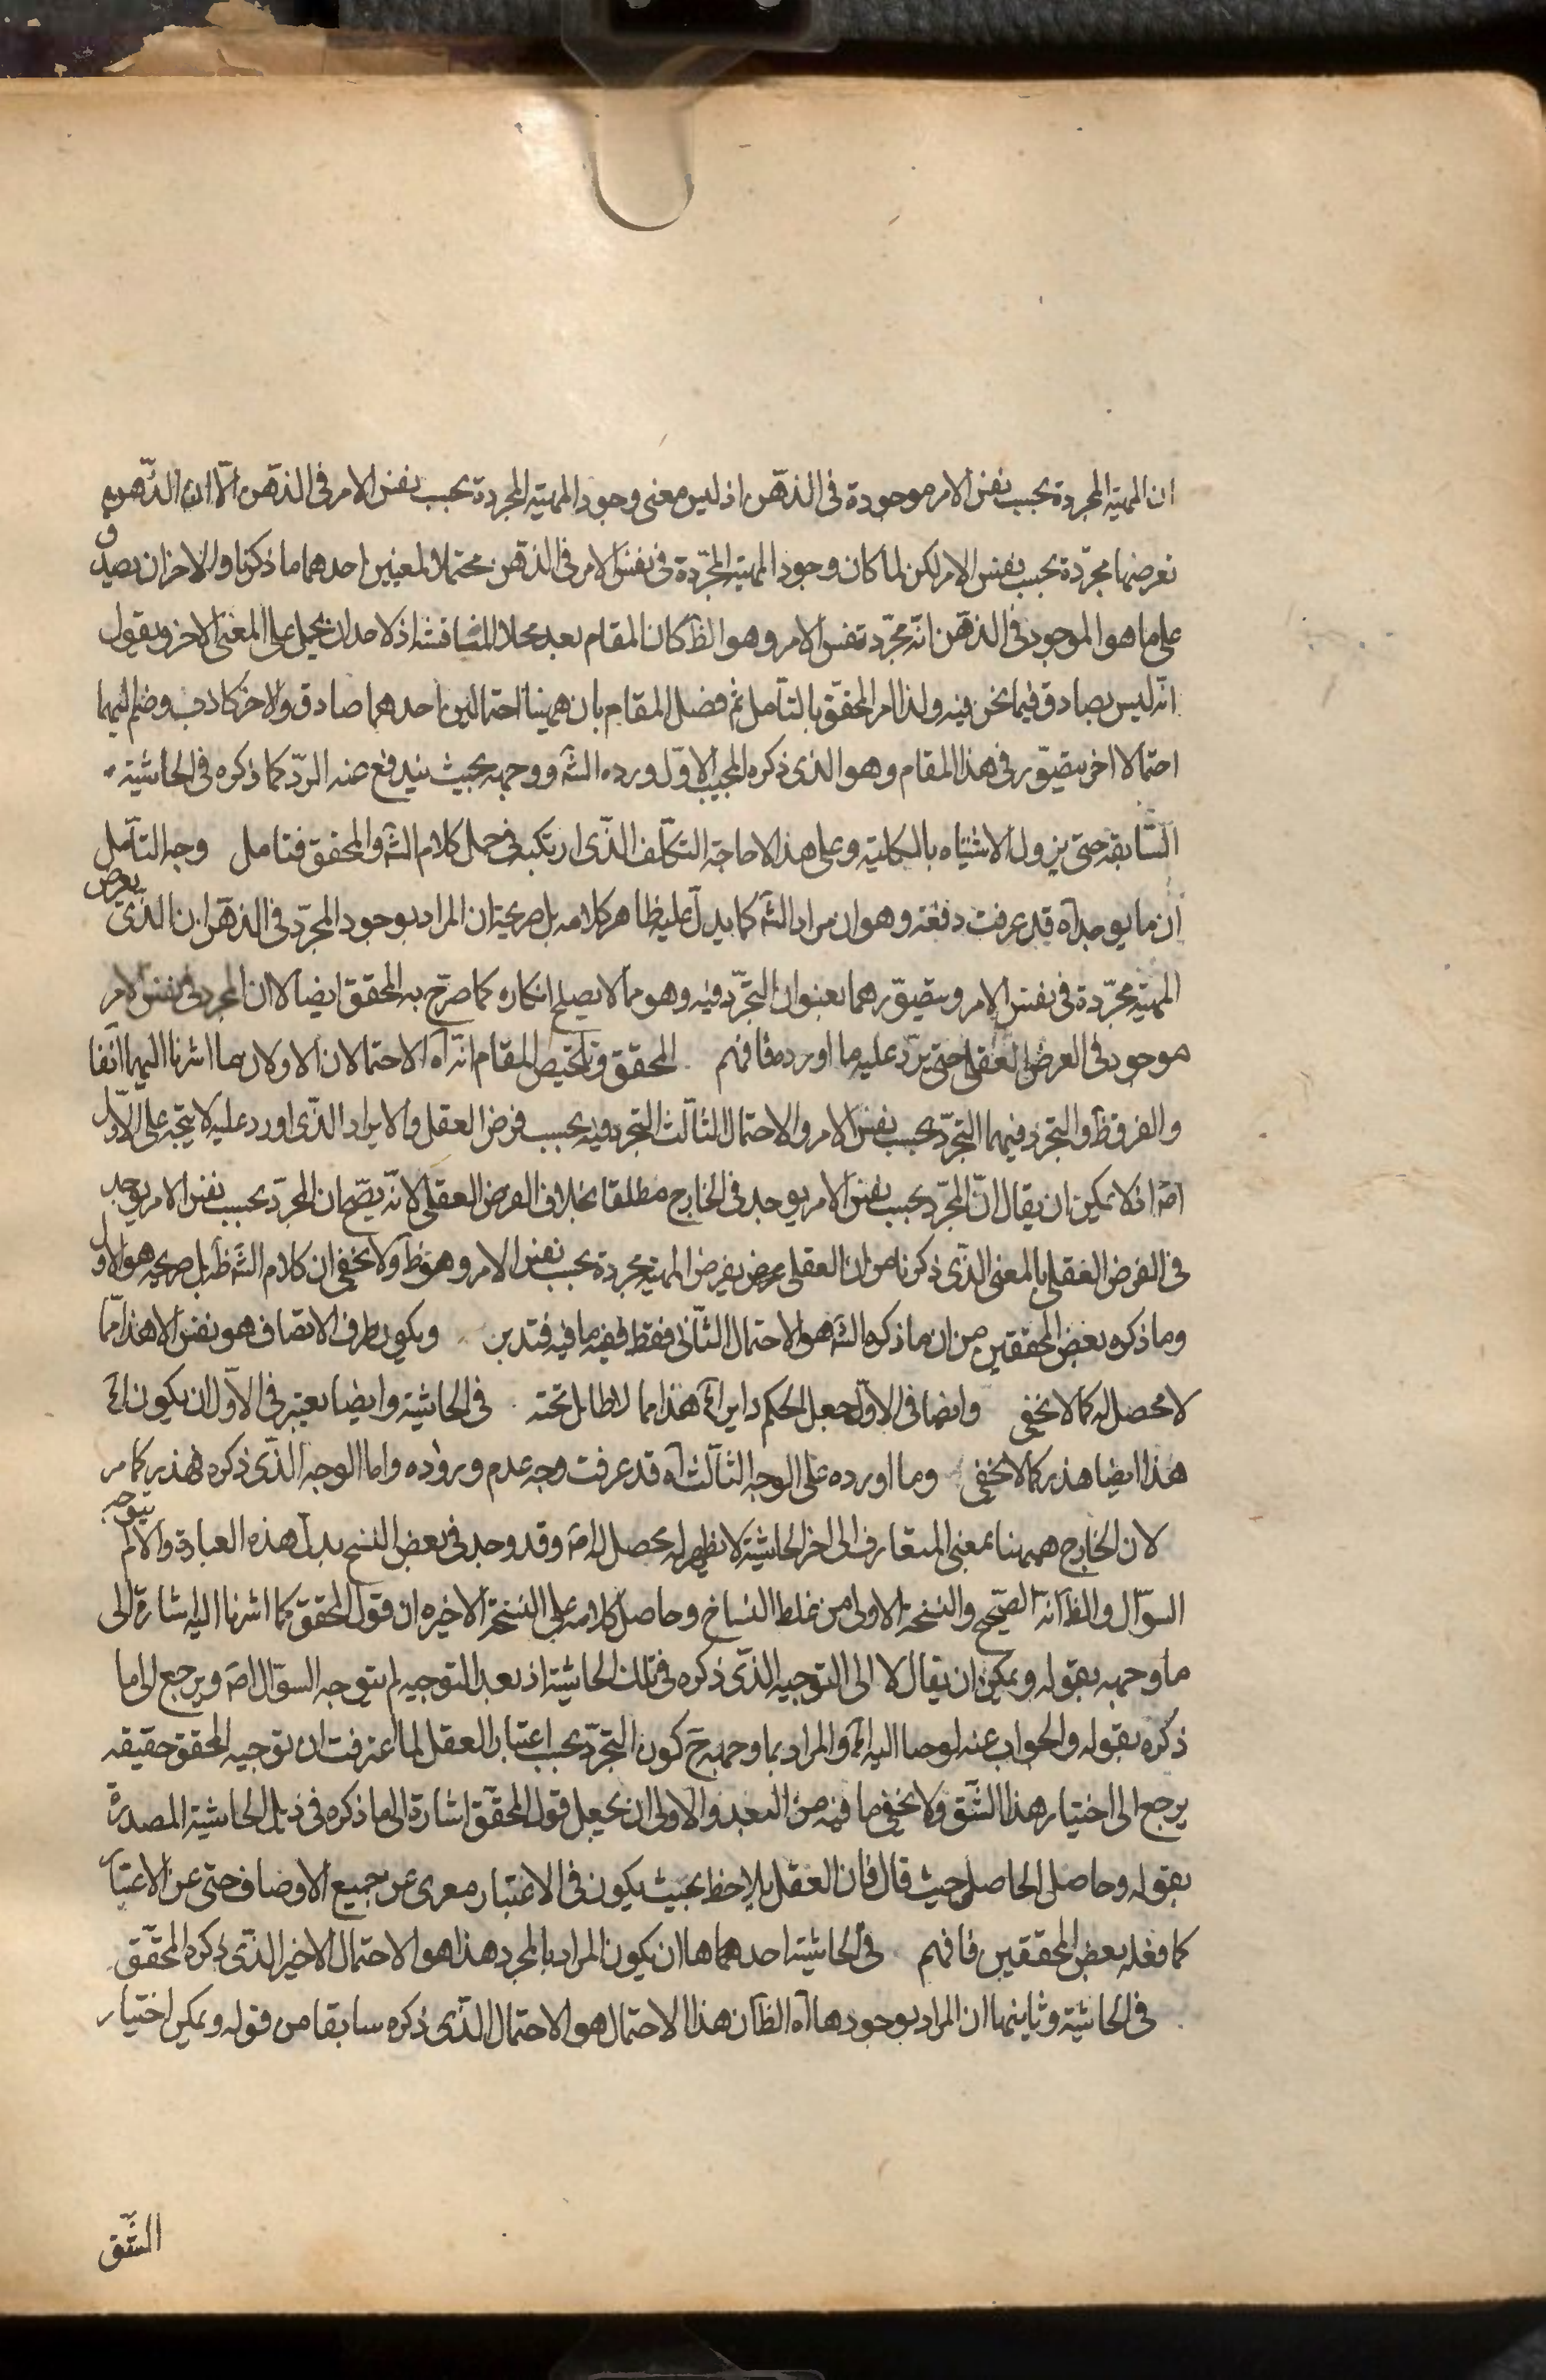 ان المهية المجردة بحسب نفس الامر موجودة فى الذهن اذ ليس معنى وجود المهية المجردة بحسب نفس الامر فى الذهن الّا ان الذهن
نفرضها مجرّدة بحسب نفس الامر لكن لما كان وجود المهية المجرّدة فى نفس الامر فى الذهن محتملا لمعنيين احدهما ما ذكرنا والاخر ان يصدق
على ما هو الموجود فى الذهن انّه مجرّد بنفس الامر وهو الظ كان المقام بعد محلا للمناقشة اذ لاحد ان يحمل على المعنى الاخر ويقول
انّه ليس بصادق فيما نحن فيه ولذا امر المحقّق بالتأمل ثم فصل المقام بان ههنا احتمالين احدهما صادق والاخر كاذب وضم اليهما
احتمالا اخر يتصوّر فى هذا المقام وهو الذى ذكره المجيب الاوّل ورده الشه ووجهه بحيث يندفع عنه الردّ كما ذكره فى الحاشية
السّابقة حتى يزول الاشتباه بالكلية وعلى هذا لا حاجة التكلّف الذّى ارتكبه فى حمل كلام الشه والمحقق فتامل وجه التأمل
ان ما يوجد آه قد عرفت دفعه وهو ان مراد الشه كما يدلّ عليه ظاهر كلامه بل صريحه ان المراد بوجود المجرّد فى الذهن ان الذى يفرض
المهية مجرّدة فى نفس الامر ويتصوّرهما بعنوان التجرّد فيه وهو مما لا يصلح انكاره كما صرّح به المحقق ايضا لا ان المجرد فى نفس الامر
موجود فى الفرض العقلى حتى يردّ عليه ما اورده فافهم المحقق وتلخيص المقام انّه آه الاحتمالان الاولان هما اشرنا اليهما انفا
والفرق ظ والتجرد فيهما التجرّد بحسب نفس الامر والاحتمال الثالث التجرد فيه بحسب فرض العقل والايراد الذّى اورد عليه لا يتجه على الاوّل
اصّ اذ لا يمكن ان يقال انّ المجرّد بحسب نفس الامر يوجد فى الخارج مطلقا بخلاف الفرض العقلى لانّه يصّح ان المجرّد بحسب نفس الامر يوجد
فى الفرض العقلى بالمعنى الذّى ذكرنا من ان العقل يفرض المهية مجردة بحسب نفس الامر وهو ظ ولا يخفى ان كلام الشه ظ بل صريحه هو الاول
وما ذكره بعض المحققين من ان ما ذكره الشه هو الاحتمال الثّانى فقط ففيه ما فيه فتدبر ويكون طرف الاتصاف هو نفس الا هذا ممّا
لا محصل له كما لا يخفى وايضا فى الاوّل جعل الحكم دايرا آه هذا مما لا طايل تحته فى الحاشية وايضا يعتبر فى الاوّل ان يكون آه
هذا ايضا هذر كما لا يخفى وما اورده على الوجه الثالث آه قد عرفت وجه عدم وروده واما الوجه الذّى ذكره فهذر كما مر
لان الخارج ههنا بمعنى المتعارف الى اخر الحاشية لا يظهر له محصل اصّ وقد وجد فى بعض النسخ بدل هذه العبارة والا لم يتوجه
السوّال والظ انّه الصّحيح والنسخة الاولى من غلط النساخ وحاصل كلامه على النسخة الاخيره ان قول المحقق كما اشرنا اليه اشارة الى
ما وجهه بقوله ويمكن ان يقال لا الى التوجيه الذّى ذكره فى تلك الحاشية اذ بعد التوجيه لم يتوجه السوّال اصّ ويرجع الى ما
ذكره بقوله والجواب عنه لوصا اليه آه والمراد بما وجهه ح كون التجرّد بحسب اعتبار العقل لما عرفت ان توجيه المحقق حقيقه
يرجع الى اختيار هذا الشّق ولا يخفى ما فيه من البعد والاولى ان يجعل قول المحقّق اشارة الى ما ذكره فى ذيل الحاشية المصدرة
بقوله وحاصل الحاصل حيث قال فان العقل يلاحظ بحيث يكون فى الاعتبار معرى عن جميع الاوصاف حتى عن الاعتبار
كما فعله بعض المحققين فافهم فى الحاشية احدهما ان يكون المراد بالمجرد هذا هو الاحتمال الاخير الذّى ذكره المحقّق
فى الحاشية وثاينهما ان المراد بوجودها آه الظ ان هذا الاحتمال هو الاحتمال الذّى ذكره سابقا من قوله ويمكن اختيار
الشّق